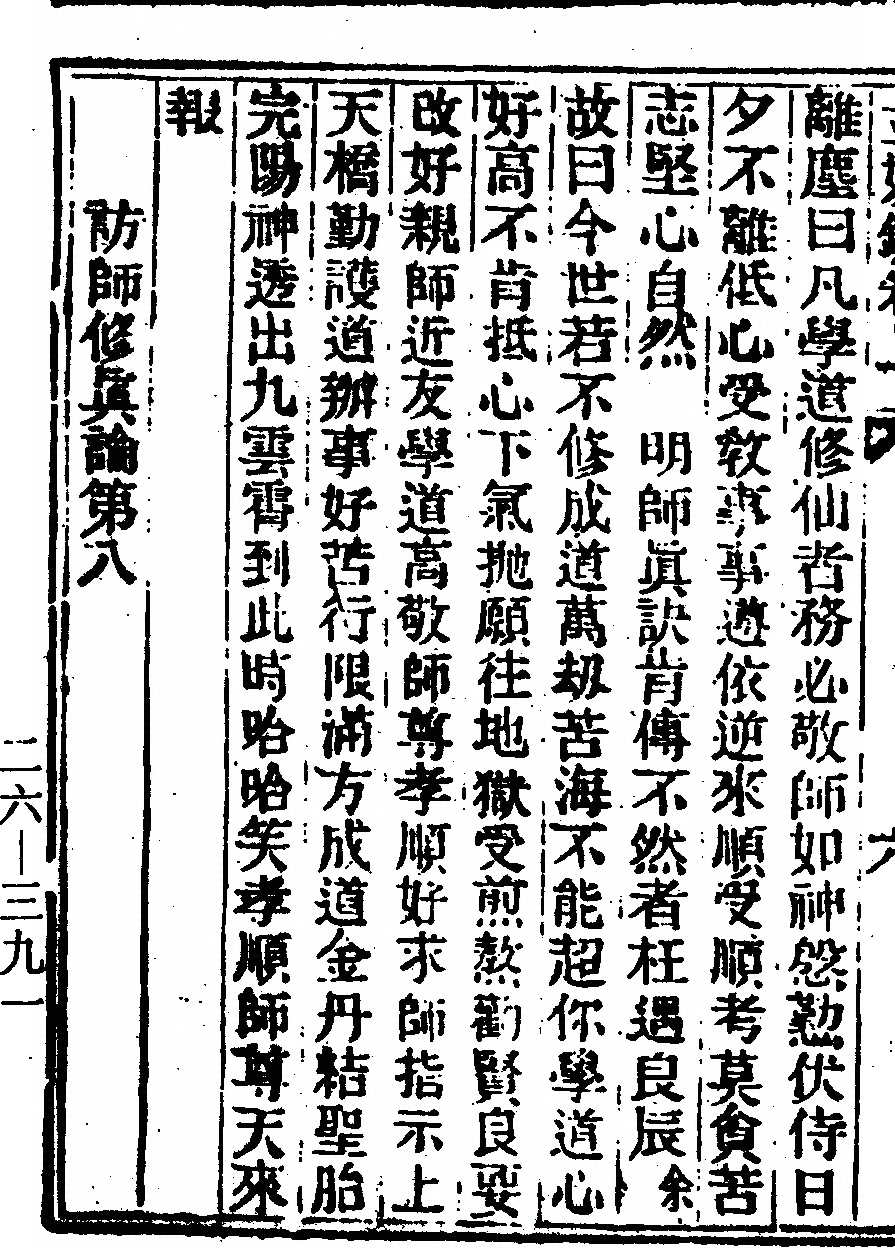 離塵曰凡學道修仙者務必敬師如神慇懃伏侍日
夕不離低心受教事事遵依逆來順受順考莫貪苦
志堅心自然　明師眞訣肯傳不然者枉遇良辰　余
故曰今世若不修成道萬劫苦海不能超你學道心
好高不肯抵心下氣拋願往地獄受煎熬勸賢良要
改好親師近友學道高敬師尊孝順好求師指示上
天橋勤護道辦事好苦行限滿方成道金丹結聖胎
完陽神透出九雲霄到此時哈哈笑孝順師尊天來
報
訪師修眞論第八
二六—三九一